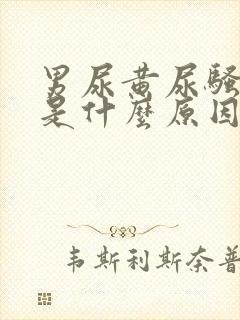 男尿黄尿骚
是什麽原因
韦斯利斯奈普